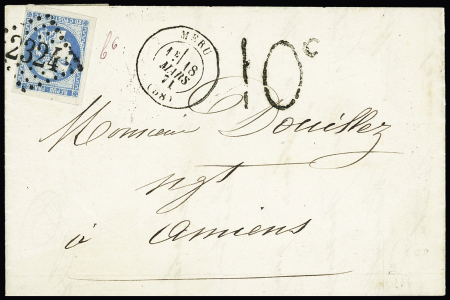 2324
MERU
1E
18
MARS
71
(58)
10c
Monsieur Douillez
ngt
à Amiens